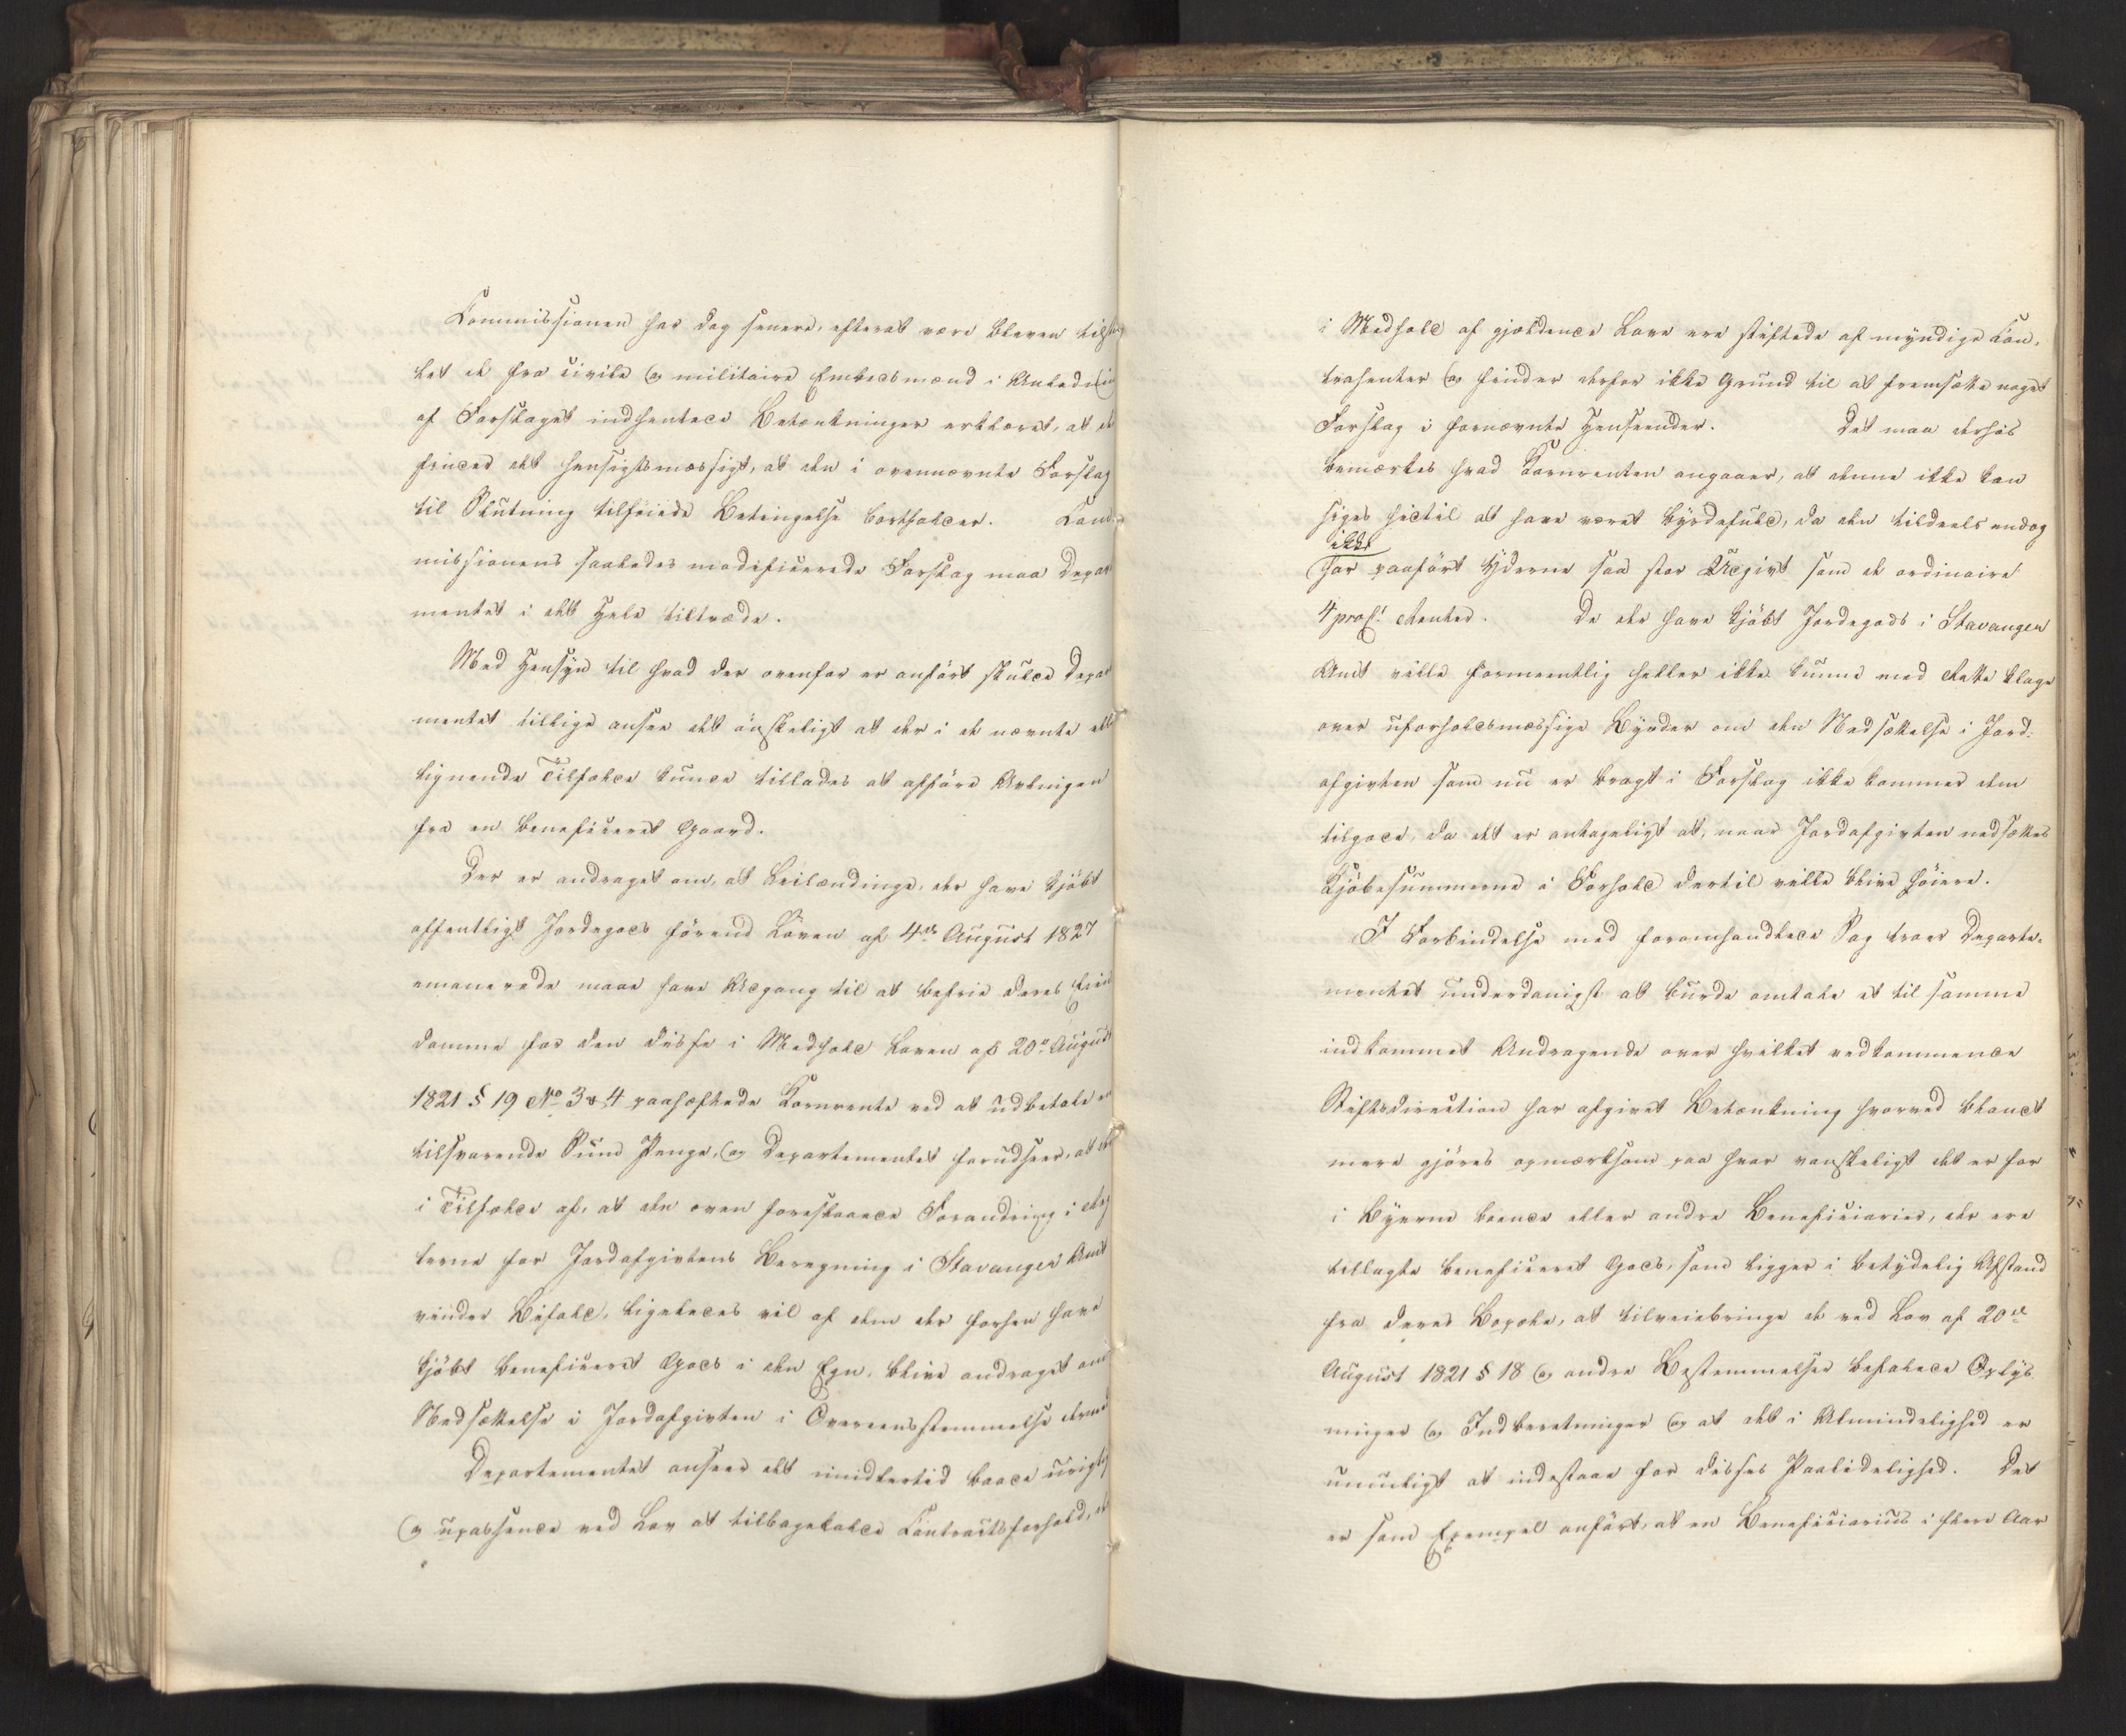 Commissionen har dog senere, efterat være bleven tilstil
let de fra civile og militaire Embedsmænd i Anledning
af Forslaget indhentede Betænkninger erklæret, at de
finder det hensigtsmæssigt, at den i ovennævnte Forslag
til Slutning tilføiede Betingelse bortfalder. Com-
missionens saaledes modificerede Forslag maa Depar
mentet i det Hele tiltræde.
Med Hensyn til hvad der ovenfor er anført skulde Depar
mentet tillige ansee det ønskeligt at der i de nævnte elle
lignende Tilfælde kunde tillades at afføre Avlingen
fra en beneficeret Gaard.
Der er andraget om, at Leilændinge, der have kjøbt
offentligt Jordegods førend Loven af 4de August 1827
emanerede maae have Adgang til at befrie deres Eien
domme for den disse i Medhold Loven af 20de August
1821 § 19 No 3 & 4 paahæftede Kornrente ved at udbetale en
tilsvarende Sum Penge, og Departementet forudseer, at det
i Tilfælde af, at den oven foreslaaede Forandring i Reg
lerne for Jordafgivtens Beregning i Stavanger Amt
vinder Bifald, ligeledes vil af dem der forhen have
kjøbt beneficeret Gods i den Egn, blive andraget om
Nedsættelse i Jordafgivten i Overeensstemmelse dermed
Departementet anseer det imidlertid baade urigtig
og upassende ved Lov at tilbagekalde Contractsforhold, der
i Medhold af gjældende Love ere stiftede af myndige Con-
trahenter og finder derfor ikke Grund til at fremsætte noget
Forslag i fornævnte Henseender. Det maa derhos
bemærkes hvad Kornrenten angaaer, at denne ikke kan
siges hidtil at have været byrdefuld, da den tildeels endog
ikke
har paaført Yderne saa stor Udgivt som de ordinaire
4 proCt Renter. De der have kjøbt Jordegods i Stavanger
Amt ville formeentlig heller ikke kunne med Rette klage
over uforholdsmæssige Byrder om den Nedsættelse i Jord-
afgivten som nu er bragt i Forslag ikke kommer dem
tilgode, da det er antageligt at, naar Jordafgivten nedsættes
Kjøbesummerne i Forhold dertil ville blive høiere.
I Forbindelse med foromhandlede Sag troer Departe-
mentet underdanigst at burde omtale et til samme
indkommet Andragende over hvilket vedkommende
Stiftsdirection har afgivet Betænkning hvorved blandt
mere gjøres opmærksom paa hvor vanskeligt det er for
i Byerne boende eller andre Beneficiarier, der ere
tillagte beneficeret Gods, som ligger i betydelig Afstand
fra deres Bopæle, at tilveiebringe de ved Lov af 20de
August 1821 § 18 og andre Bestemmelser befalede Oplys-
ninger og Indberetninger og at det i Almindelighed er
umuligt at indestaae for disses Paalidelighed. Det
er som Exempel anført, at en Beneficiarius i flere Aar